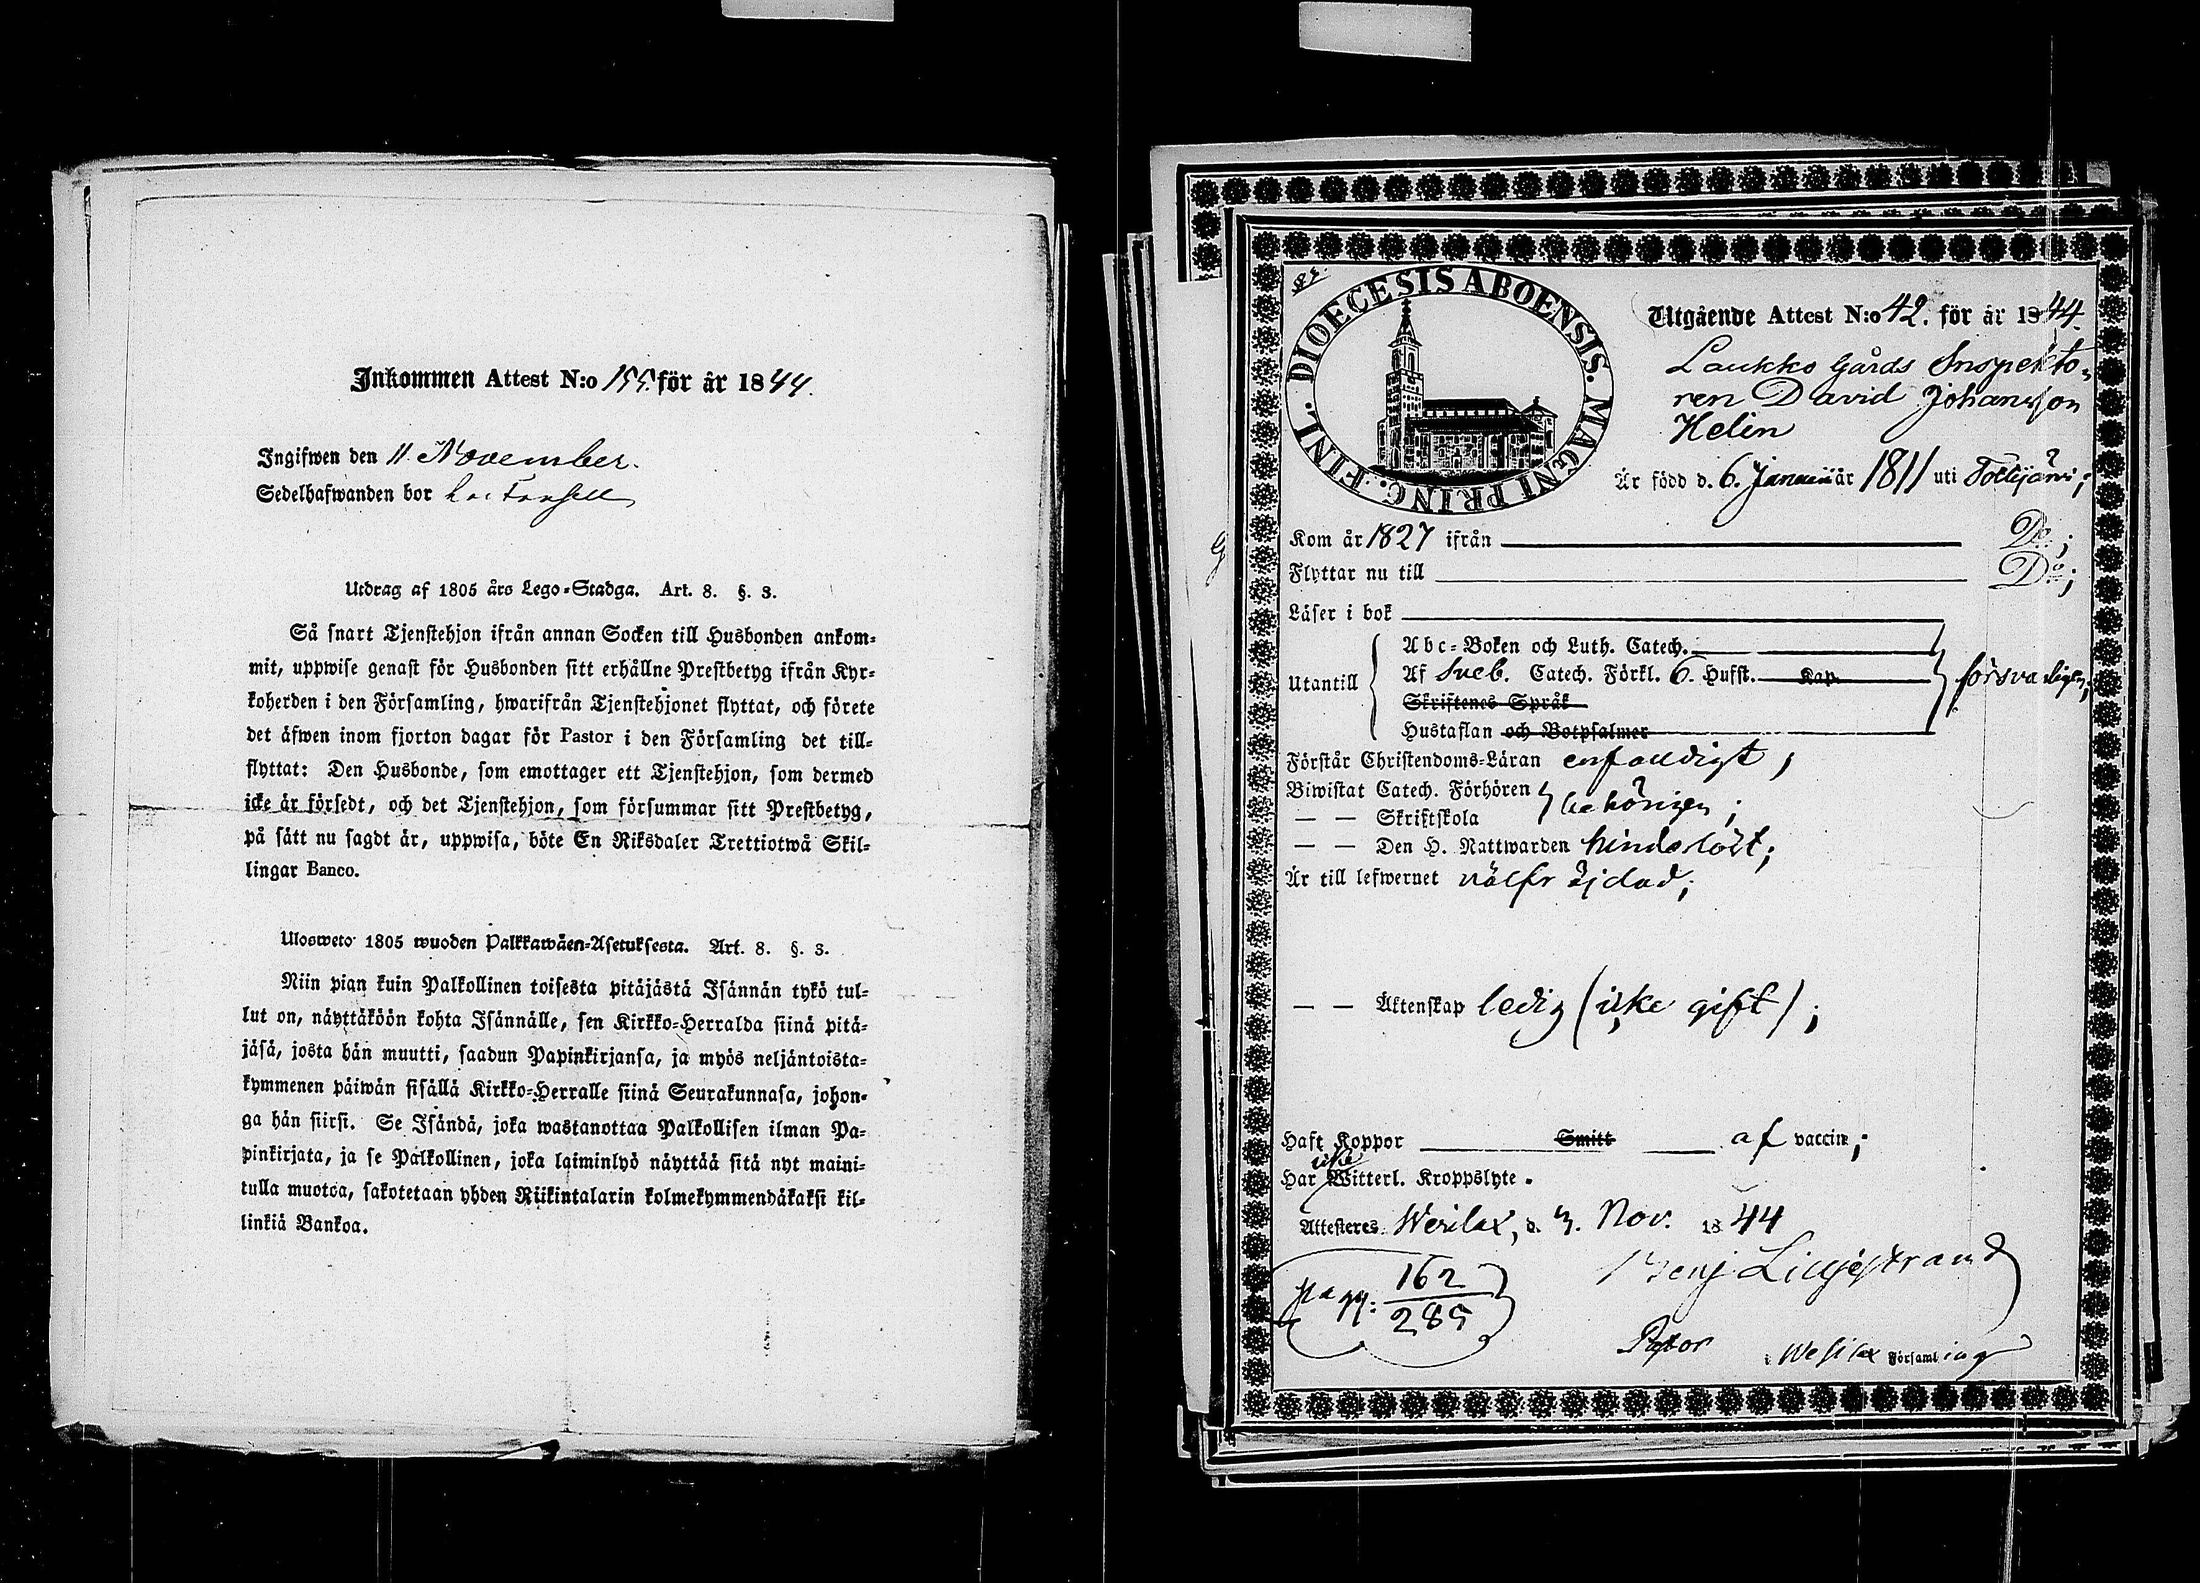 Inkommen Attest N:o 155. för år 1844.
Ingifwen den 11. November.
Sedelhafwanden bor hos
Utdrag af 1805 års Lego-Stadga. Art. 8. §. 3.
Så snart Tjenstehjon ifrån annan Socken till Husbonden ankom-
mit, uppwise genast för Husbonden sitt erhållne Prestbetyg ifrån Kyr-
koherden i den Församling, hwarifrån Tjenstehjonet flyttat, och förete
det äfwen inom fjorton dagar för Pastor i den Församling det till-
flyttat: Den Husbonde, som emottager ett Tjenstehjon, som dermed
icke är försedt, och det Tjenstehjon, som försummar sitt Prestbetyg,
på sätt nu sagdt är, uppwisa, böte En Riksdaler Trettiotwå Skil-
lingar Banco.
Ulosweto 1805 wuoden Palkkawäen-Asetuksesta. Art. 8. §. 3.
Niin pian kuin Palkollinen toisesta pitäjästä Isännän tykö tul-
lut on, näyttäköön kohta Isännälle, sen Kirkko-Herralda siinä pitä-
jäsä, josta hän muutti, saadun Papinkirjansa, ja myös neljäntoista-
kymmenen päiwän sisällä Kirkko-Herralle siinä Seurakunnasa, johon-
ga hän siirsi. Se Isändä, joka wastanottaa Palkollisen ilman Pa-
pinkirjata, ja se Palkollinen, joka laiminlyö näyttää sitä nyt maini-
tulla muotoa, sakotetaan yhden Riikintalarin kolmekymmendäkaksi kil-
linkiä Bankoa.
DIOECESIS ABOENSIS. MAGNI PRINC. FINL.
Utgående Attest N:o 42. för år 1844.
Laukko Gårds Inspekto-
ren David Johansson
Helin
Är född d. 6. Januari år 1811 uti Tottijärvi;
Kom år 1827 ifrån Do;
Flyttar nu till Do;
Läser i bok
Abc-Boken och Luth. Catech.
Utantill Af Sveb. Catech. Förkl. 6. Hufst. Kap. försvarligen;
Skriftenes Språk
Hustaflan och Botpsalmer
Förstår Christendoms-Läran enfaldigt;
Biwistat Catech. Förhören behörigen;
— — Skriftskola
— — Den H. Nattwarden hinderlöst;
Är till lefwernet välfräjdad;
— — Äktenskap ledig (icke gift);
Haft Koppor Smitt af vaccin;
Har icke Witterl. Kroppslyte.
Attesteres Wesilax, d. 3. Nov. 1844
Benj Lilljestrand
pagg: 162
285
Pastor i Wesilax Församling